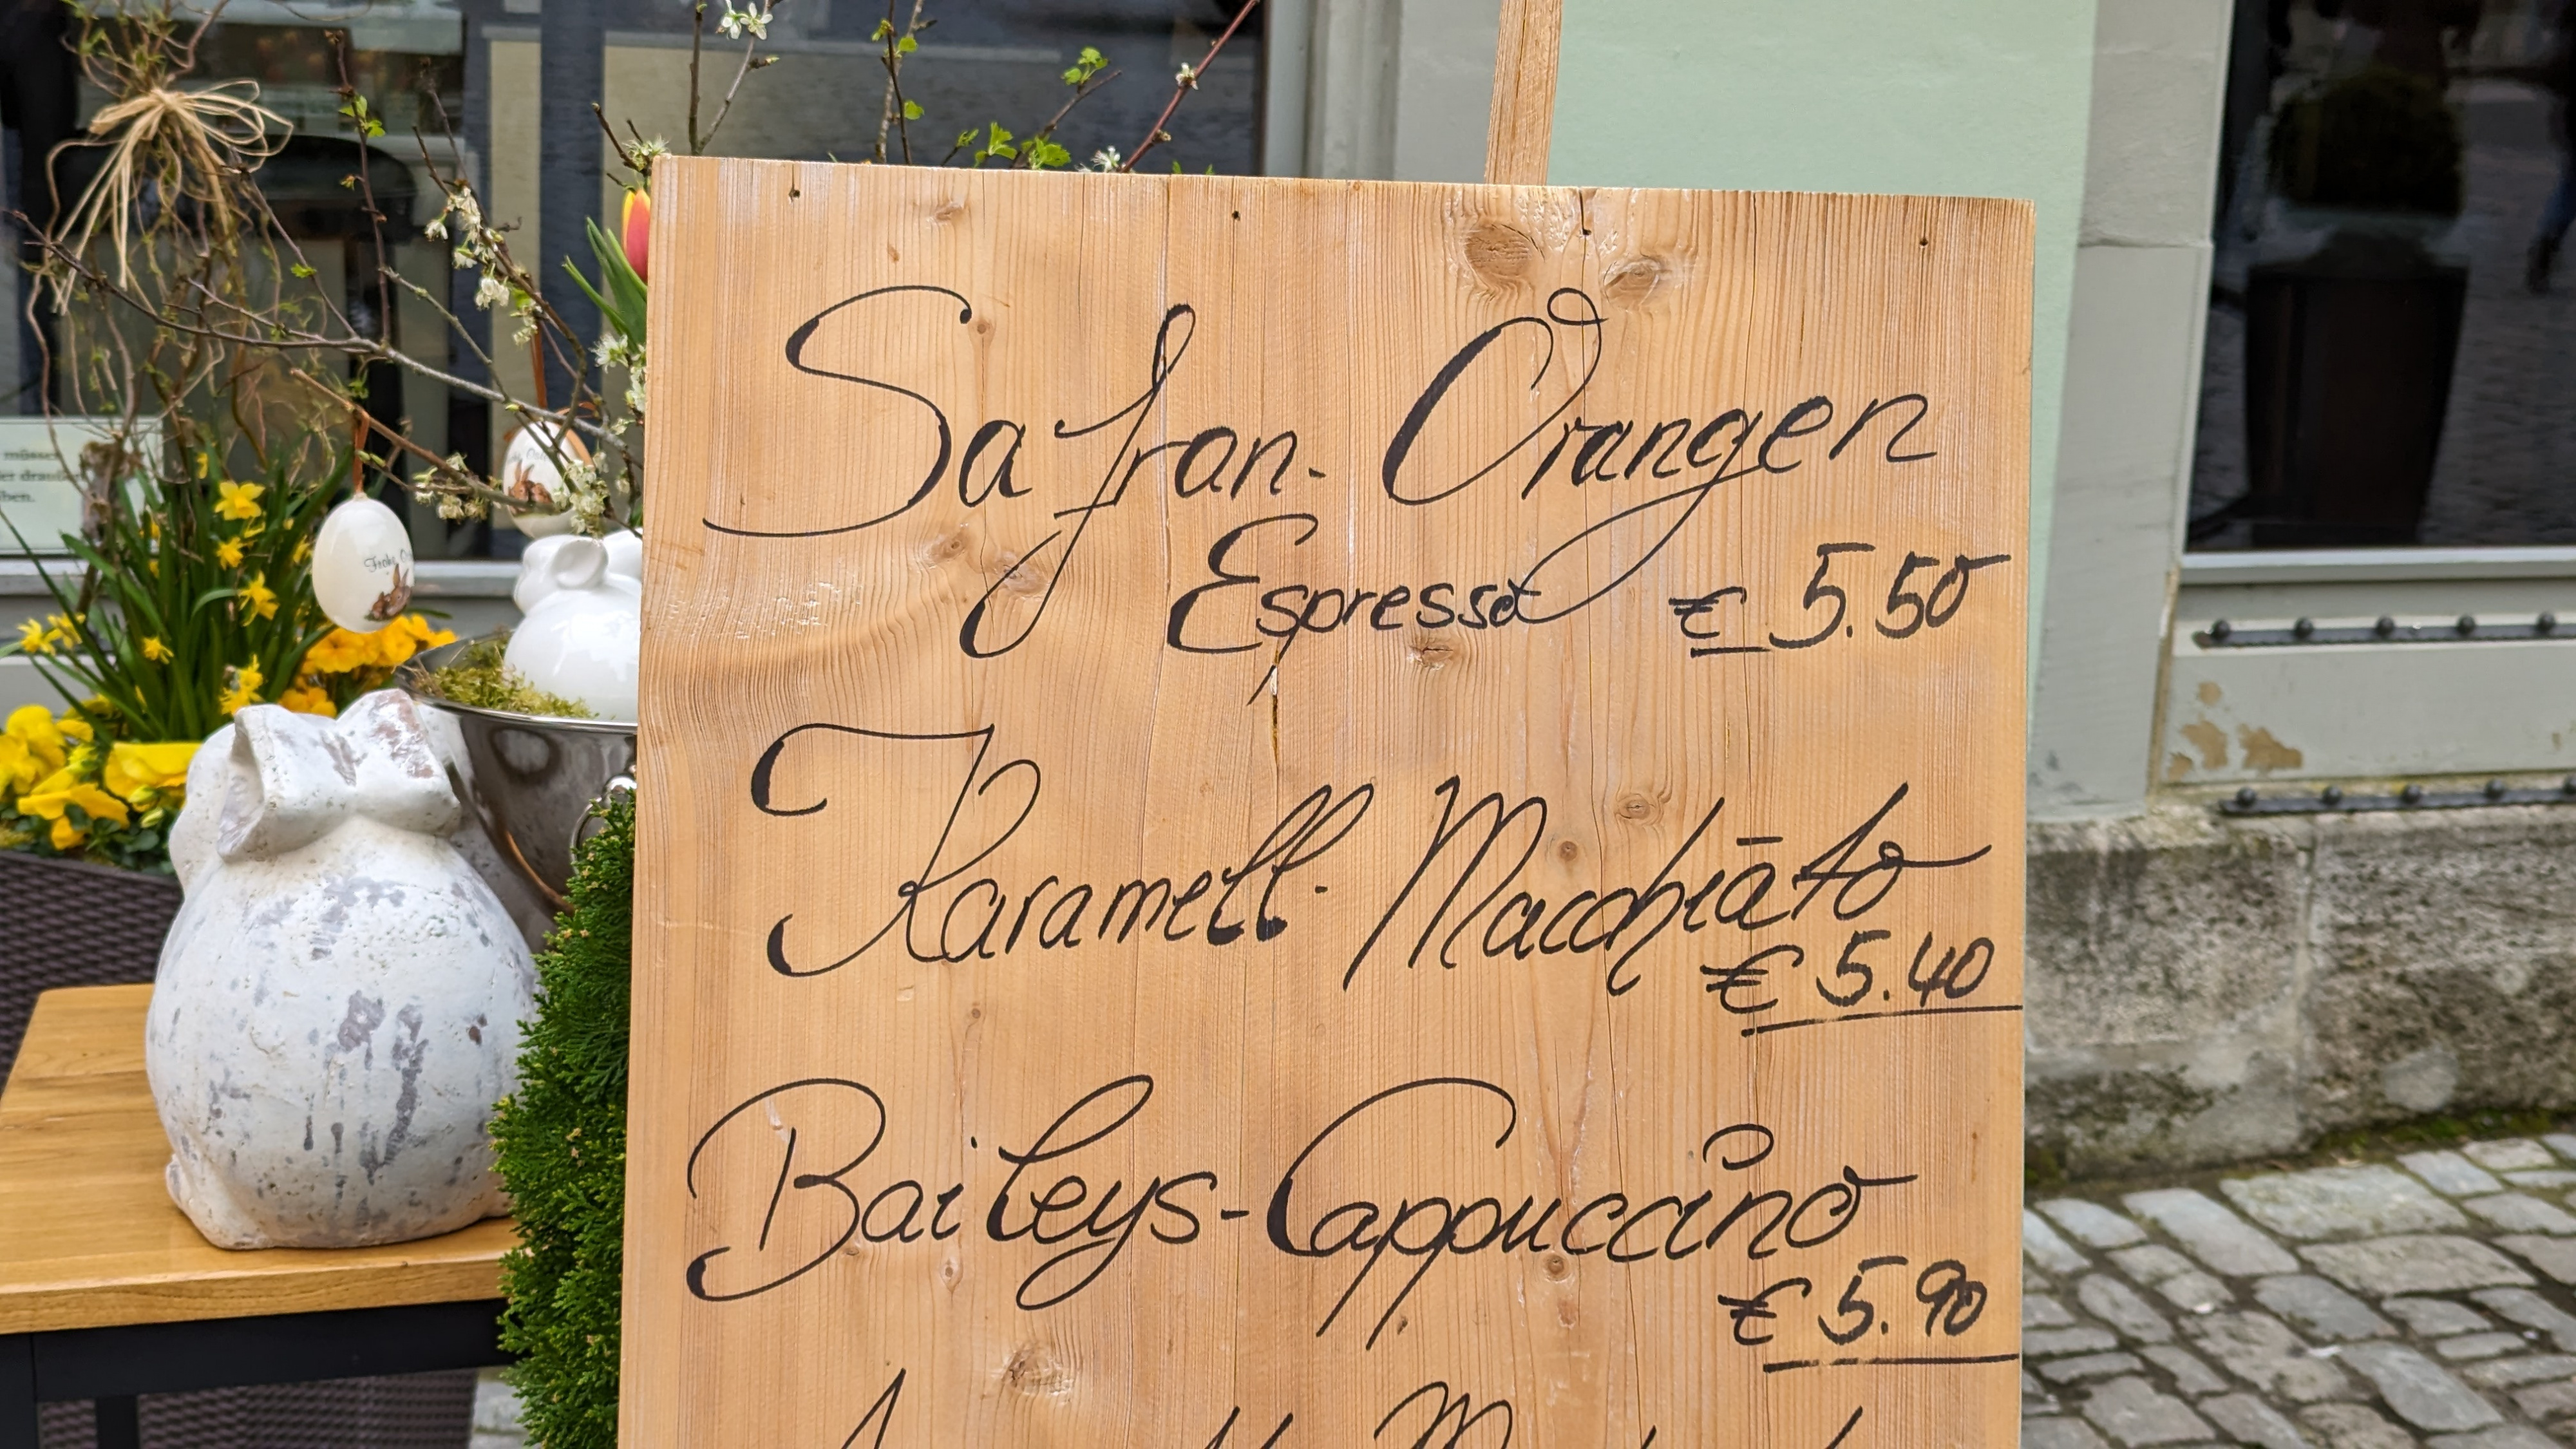 Safran- Orangen
Espresso € 5.50
Karamell- Macchiāto
€ 5.40
Baileys-Cappuccino
€ 5.90
Frohe
müssen